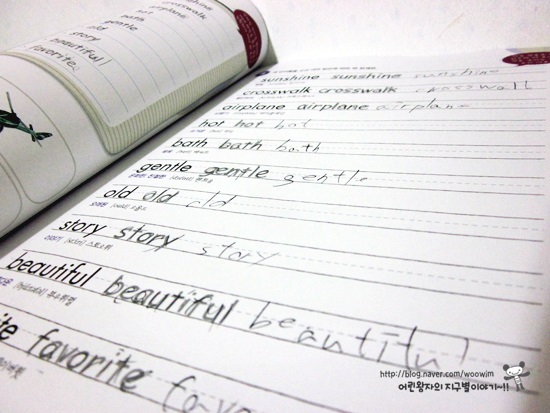 crosswalk
airplane
hot
bath
gentle
old
story
beautiful
favorite
sunshine sunshine sunshine
crosswalk crosswalk crosswalk
airplane airplane airplane
hot hot hot
bath bath bath
gentle gentle gentle
old old old
story story story
이야기
beautiful beautiful beautiful
favorite
http://blog.naver.com/woowjm
어린왕자의 지구별이야기~!!